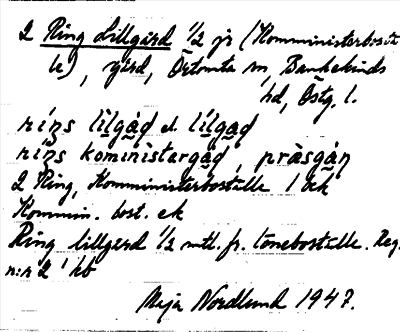 2 Ring Lillgård 1/2 jr (Komministerboställe
k), gård, Örtomta sn, Bankekinds
hd, Östg. l.
riŋs lìlgàd el. lílgad
riŋs kominìstergàd, pràsgàṇ
2 Ring, Komministerboställe 1 ek
Kommin. bost. ek
Ring lillgård 1/2 mtl. fr. löneboställe. Reg.
n:r 2 1 kb
Maja Nordlund 1947.